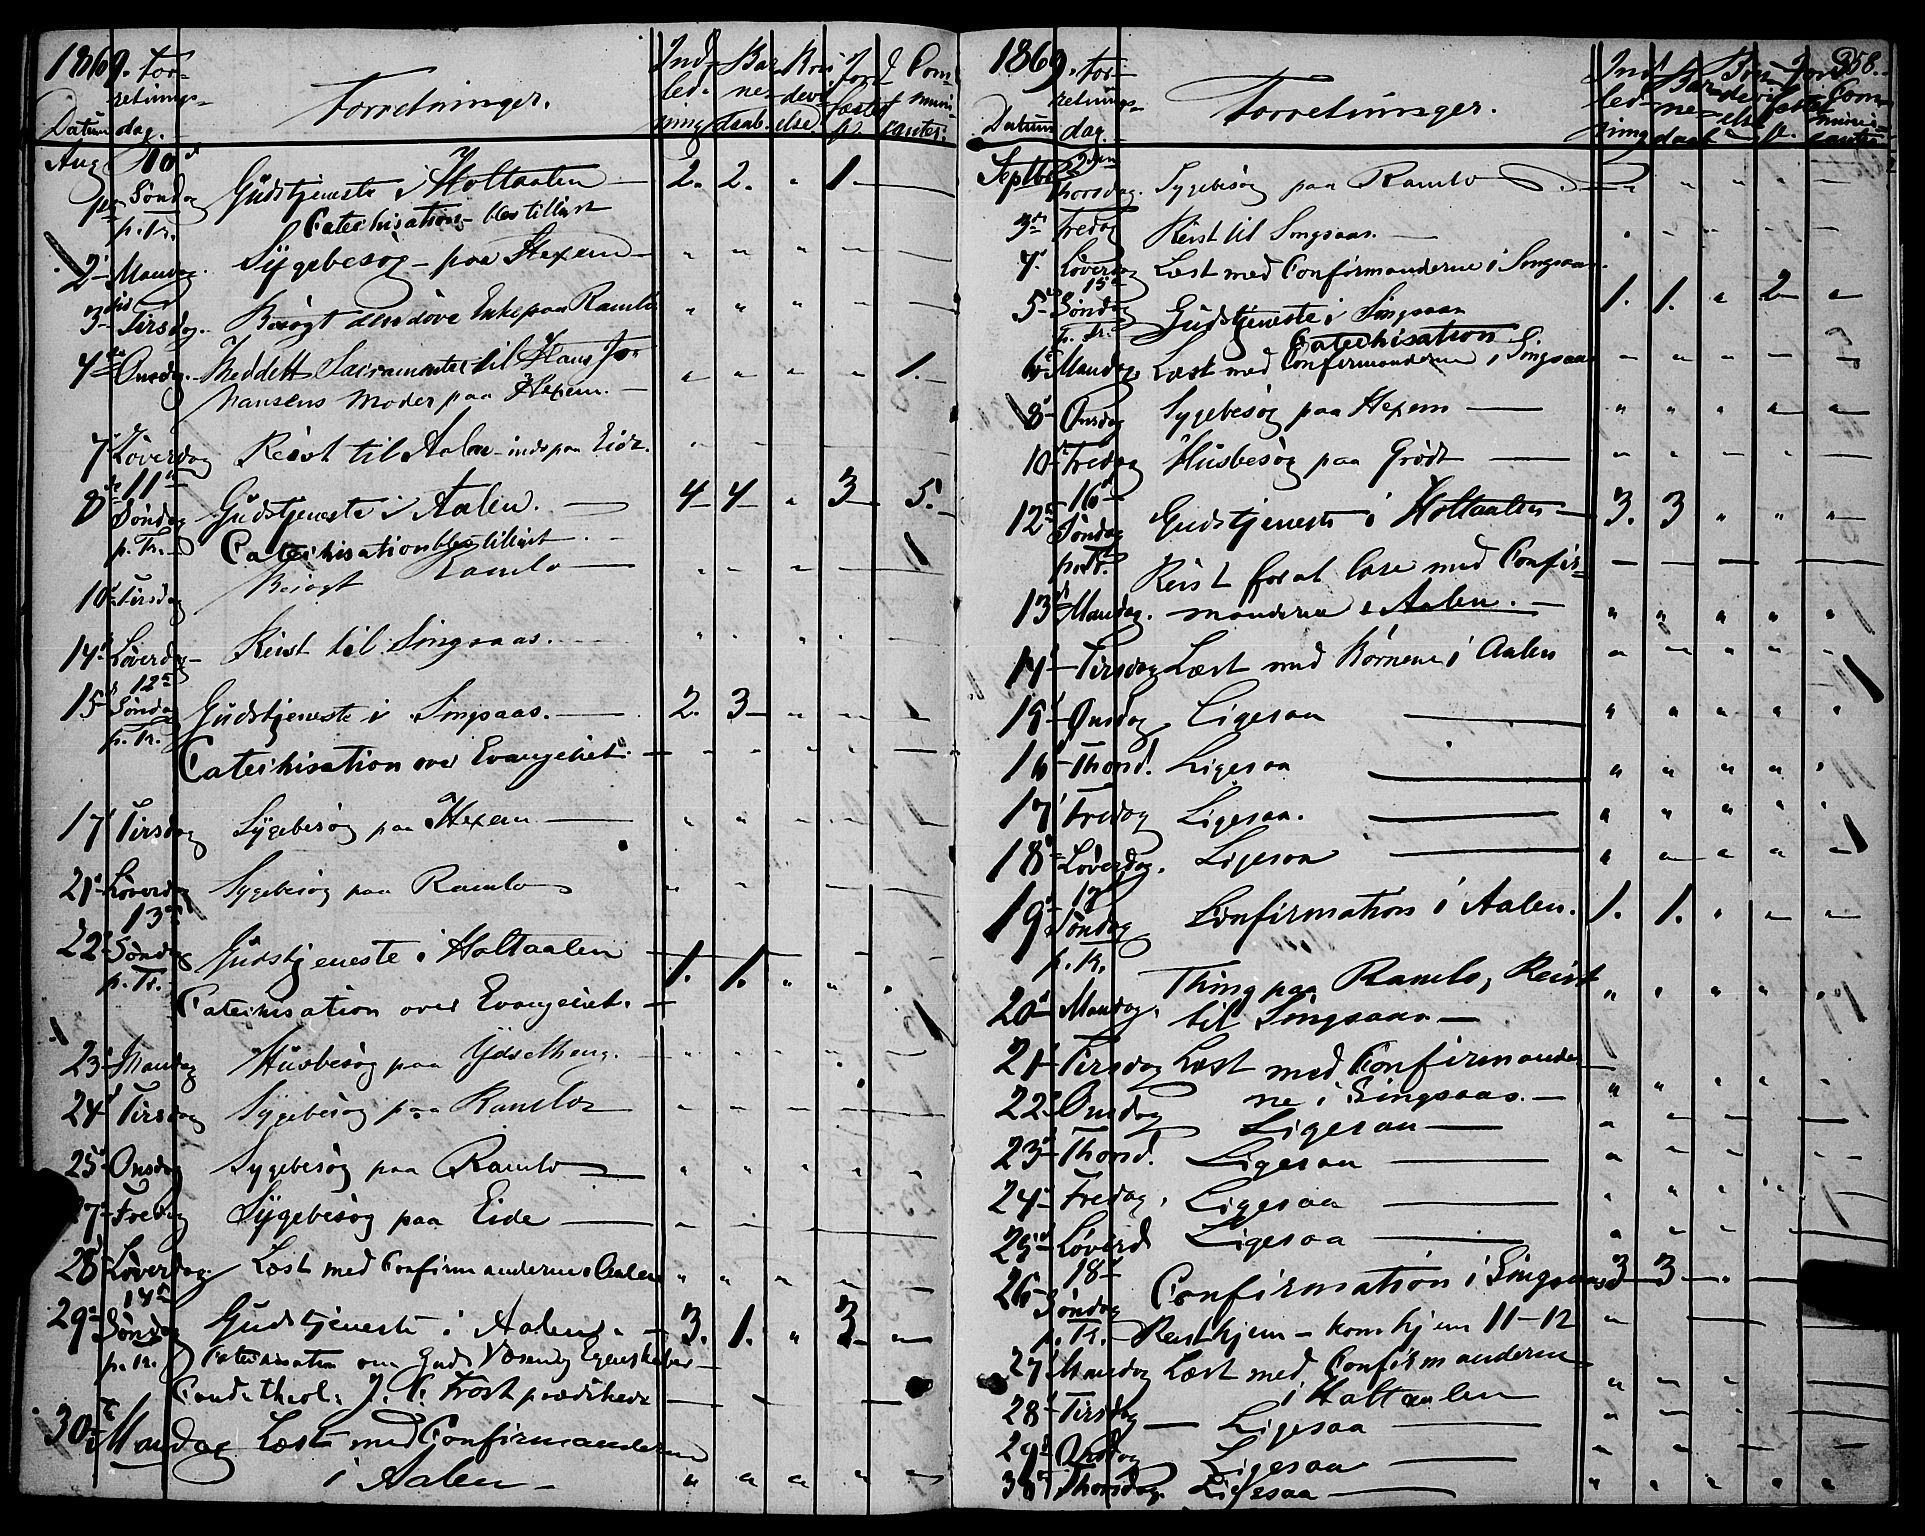 1869. For-
retnings-
Datum dag. Forretninger. Ind- led- ning Bar- ne- daab. Kon- devi- else Forl. Com- muni- canter.
Aug 10de
1ste Søndag p. Tr. Gudstjeneste i Holtaalen — 2. 2. " 1. —
Catechisation blev tillyst
2- Mandag. Sygebesøg - paa Hexem — " " " "
3- Tirsdag. Besøgt den døve Enke paa Ramlo " " "
4de Onsdag. Meddelt Sacramentet til Hans Jo- " " " " 1. -
hansens Moder paa Hexem. —
7- Løverdag Reist til Aalen - inds paa Eide.
11te
8de Søndag p. Tr. Gudstjeneste i Aalen. — 4 4 - " 3 5. -
Catechisation blev tillyst
10- Tirsdag Besøgt Ramlo —
14- Løverdag - Reist til Singsaas.
12te
15- Søndag p. Tr. Gudstjeneste i Singsaas. — 2. 3 - " " "
Catechisation over Evangeliet. —
17 Tirsdag Sygebesøg paa Hexem —
21- Løverdag Sygebesøg paa Ramlo
13de
22- Søndag p. Tr. Gudstjeneste i Holtaalen — 1. 1. " " "
Catechisation over Evangeliet. —
23- Mandag Husbesøg paa Ydsetheng.
24- Tirsdag Sygebesøg paa Ramlo
25- Onsdag Sygebesøg paa Ramlo —
27- Fredag Sygebesøg paa Eide —
28- Løverdag. Læst med Confirmanderne i Aalen " " " "
14de
29- Søndag p. Tr. Gudstjeneste i Aalen. — 3. 1. " 3 -
Catechisation om Guds Væsen og Egenskaber —
Cand. theol. J. C. Frost prædikede
30te Mandag Læst med Confirmanderne
i Aalen - " " " " "
1869. For-
retnings-
Datum dag. Forretninger. 358.
Septbr 2den Thorsdag. Sygebesøg paa Ramlo
3- Fredag Reist til Singsaas. —
4. Løverdag Læst med Confirmanderne i Singsaas.
15de
5- Søndag p. Tr. Gudstjeneste i Singsaas 1. 1. " 2 -
Catechisation
6- Mandag. Læst med Confirmanderne i Singsaas
8- Onsdag Sygebesøg paa Hexem —
10- Fredag Husbesøg paa Grødt —
16-
12- Søndag p. Tr. Gudstjeneste i Holtaalen — 3. 3 " " "
Reist for at læse med Confir-
13- Mandag. manderne i Aalen. —
14- Tirsdag Læst med Børnene i Aalen
15- Onsdag Ligesaa —
16- Thorsd. Ligesaa —
17 Fredag Ligesaa. —
18- Løverdag. Ligesaa —
17de
19- Søndag p. Tr. Confirmation i Aalen. 1. 1. " " "
20- Mandag. Thing paa Ramlo, Reist
til Singsaas —
21- Tirsdag Læst med Confirmander-
22- Onsdag ne i Singsaas. —
Ligesaa —
23- Thorsd. Ligesaa —
24- Fredag. Ligesaa —
25- Løverd Ligesaa —
18-
26- Søndag p. Tr. Confirmation i Singsaas 3 3 - " —
Reist hjem - kom hjem 11-12
27 Mandag Læst med Confirmanderne
i Holtaalen
28- Tirsdag — Ligesaa —
29- Onsdag Ligesaa —
30- Thorsdag. Ligesaa —